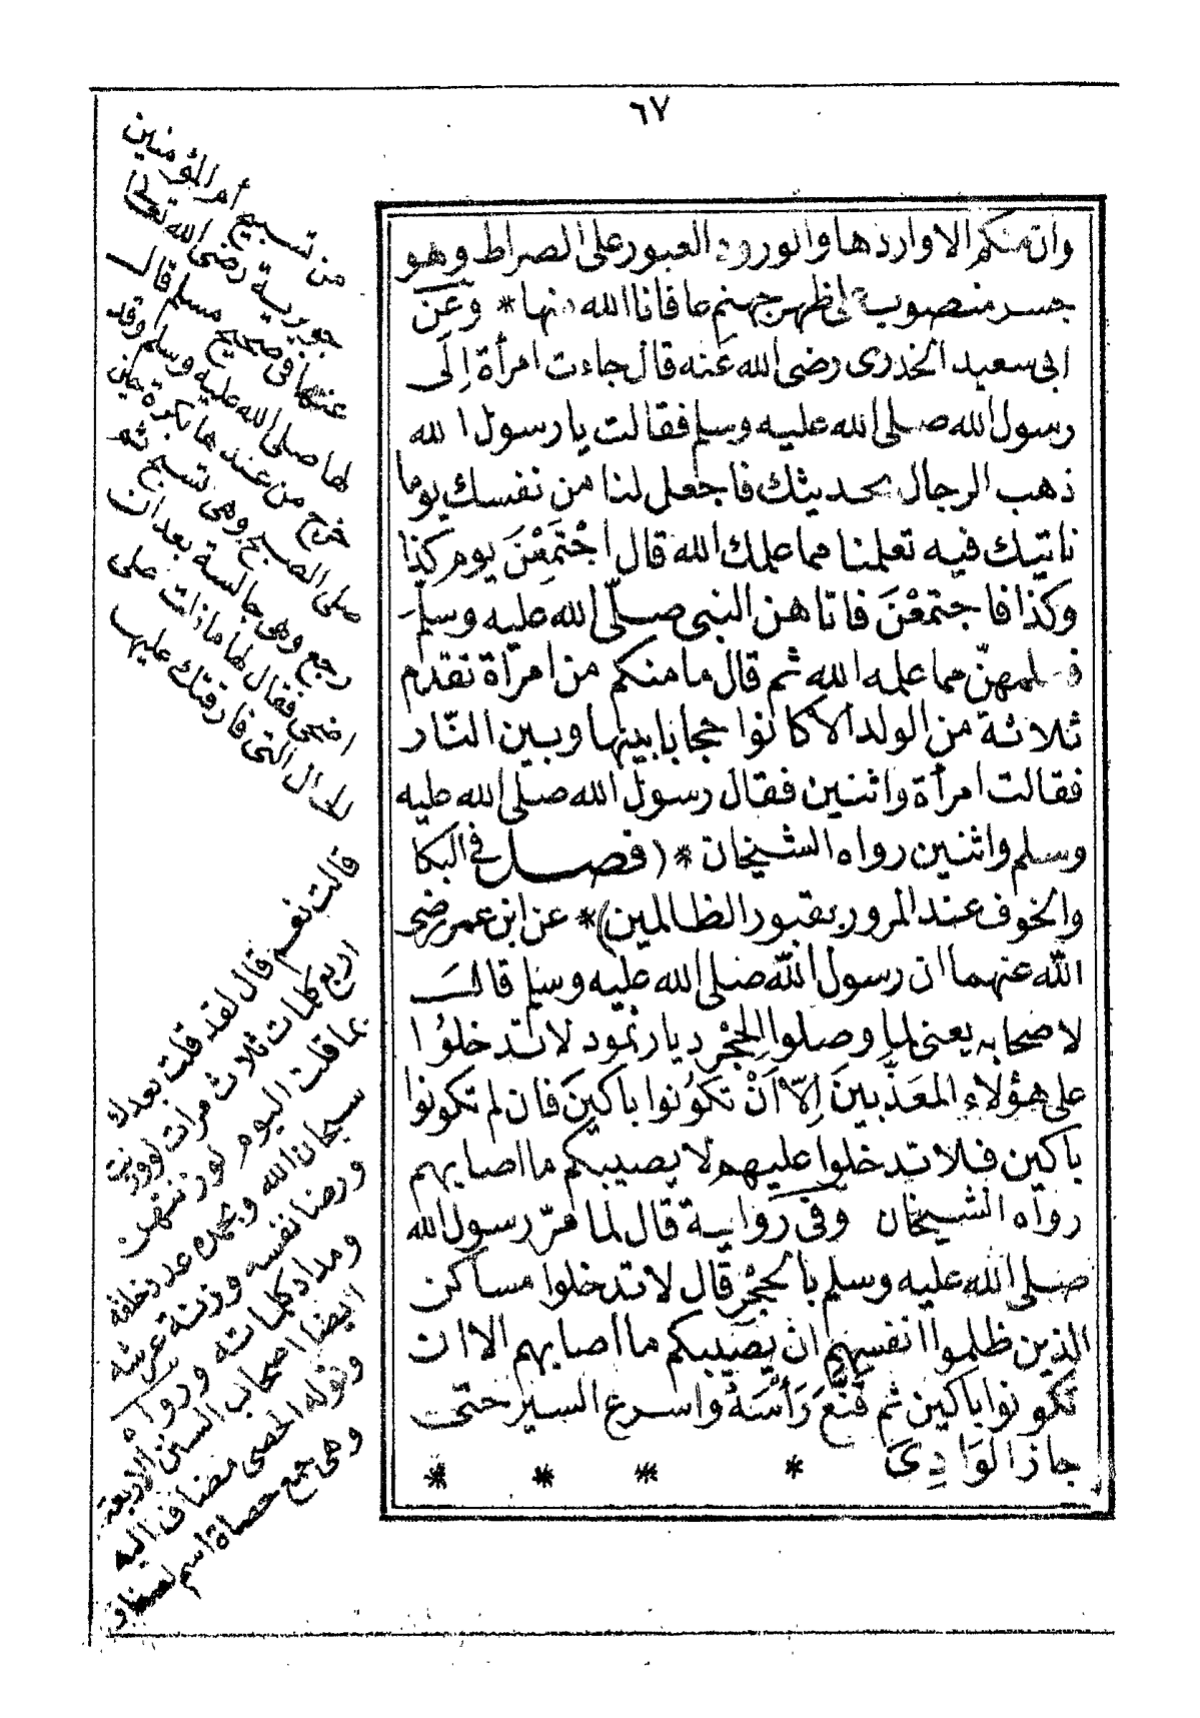 ٦٧
وان منكم الا واردها والورود العبور على الصراط وهو
جسر منصوب على ظهر جهنم عافانا الله منها * وَعَنْ
ابى سعيد الخدرى رضى الله عنه قال جاءت امرأة اِلَى
رسول الله صلى الله عليه وسلم فقالت يا رسول الله
ذهب الرجال بحديثك فاجعل لنا من نفسك يوما
ناتيك فيه تعلمنا مما علمك الله قال اجْتَمِعْنَ يوم كذا
وكذا فاجتمَعْنَ فاتاهن النبى صلّى الله عليه وسلم
فعلمهنّ مما علمه الله ثم قال ما منكم من امرأة تقدم
ثلاثة من الولد الا كانوا حجابا بينها وبين النّار
فقالت امرأة واثنين فقال رسول الله صلى الله عليه
وسلم واثنين رواه الشيخان * (فصل فى البكا
والخوف عند المرور بقبور الظالمين) * عن ابن عمر رضى
الله عنهما ان رسول الله صلى الله عليه وسلم قال
لاصحابه يعنى لما وصلوا الحِجْر ديار ثمود لا تدخلُوا
على هؤلاء المعَذَّبينَ اِلاّ اَنْ تكوُنوا باكينَ فان لم تكونوا
باكين فلا تدخلوا عليهم لا يصيبكم ما اصابهم
رواه الشيخان وفى رواية قال لما مرّ رسول الله
صلى الله عليه وسلم بالحِجْر قال لا تدخلوا مساكن
الذين ظلموا انفسهم ان يصيبكم ما اصابهم الا ان
تكونوا باكين ثم قَنَّعَ رَأْسَهُ واسرع السير حتى
جاز الوَادِىَ * * * *
من تسبيح أم المؤمنين
جويرية رضى الله تعالى
عنها فى صحيح مسلم قال
لها صلى الله عليه وسلم وقد
خرج من عندها بكرة حين
صلى الصبح وهى تسبح ثم
رجع وهى جالسة بعد ان
اضحى فقال لها ما زلت على
الحال التى فارقتك عليها
قالت نعم قال لقد قلت بعدك
اربع كلمات ثلاث مرات لو وزنت
بما قلت اليوم لوزنتهن
سبحان الله وبحمده عدد خلقه
ورضا نفسه وزنة عرشه
ومداد كلماته ورواه
ايضا اصحاب السنن الاربعة
وقوله الحصى مضاف اليه
وهى جمع حصاة اسم لصغار